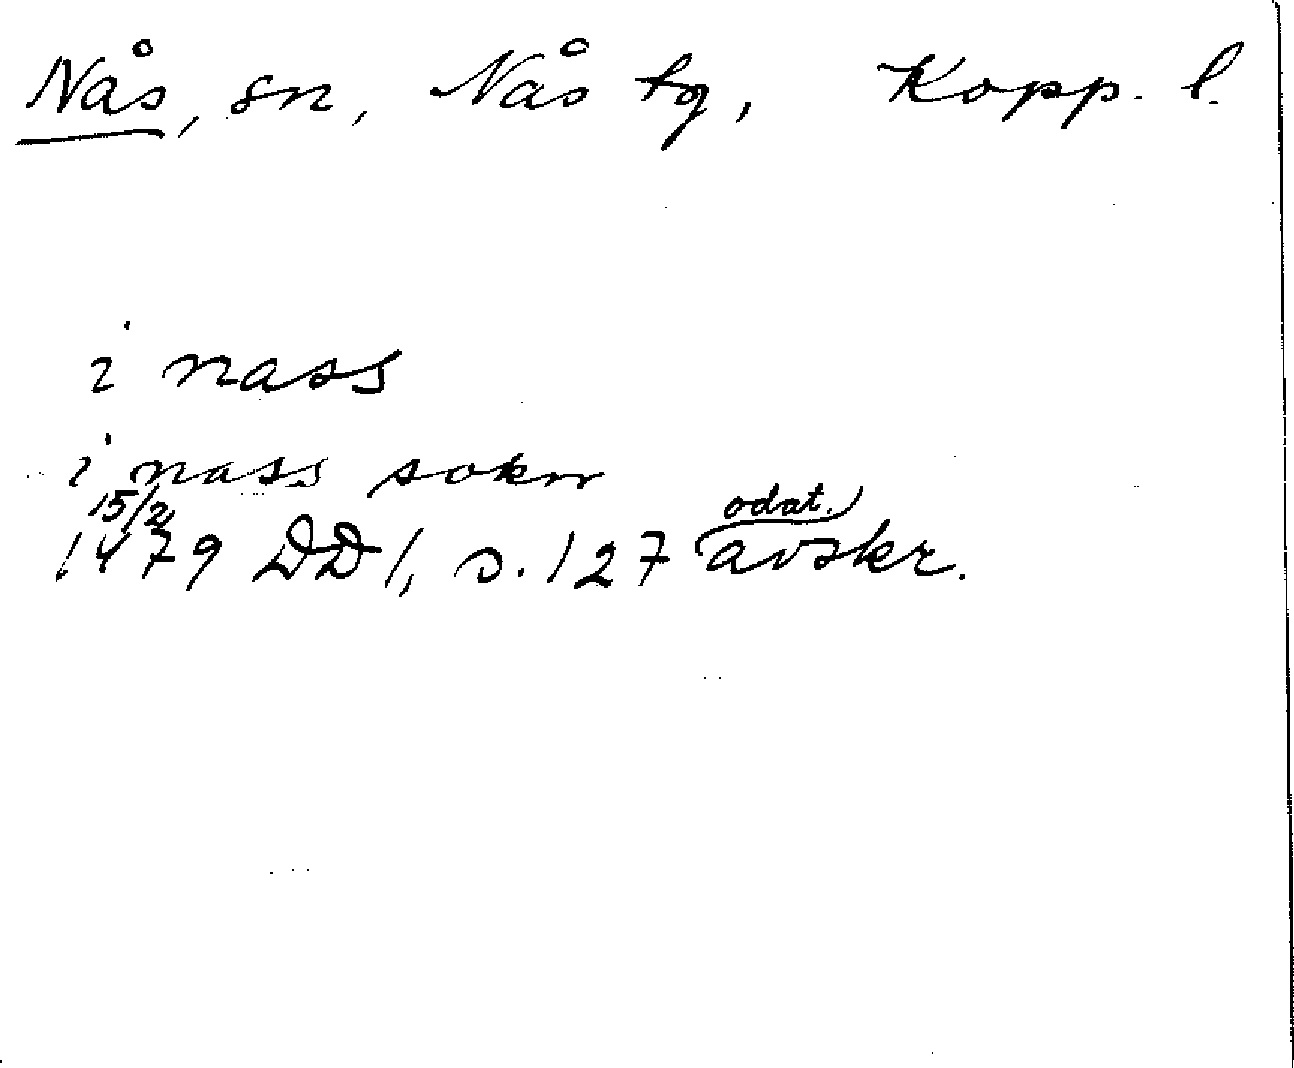 Nås, sn, Nås tg, Kopp. l.
i nass
i nass sokn
15/2
odat.
1479 DD 1, s. 127 avskr.